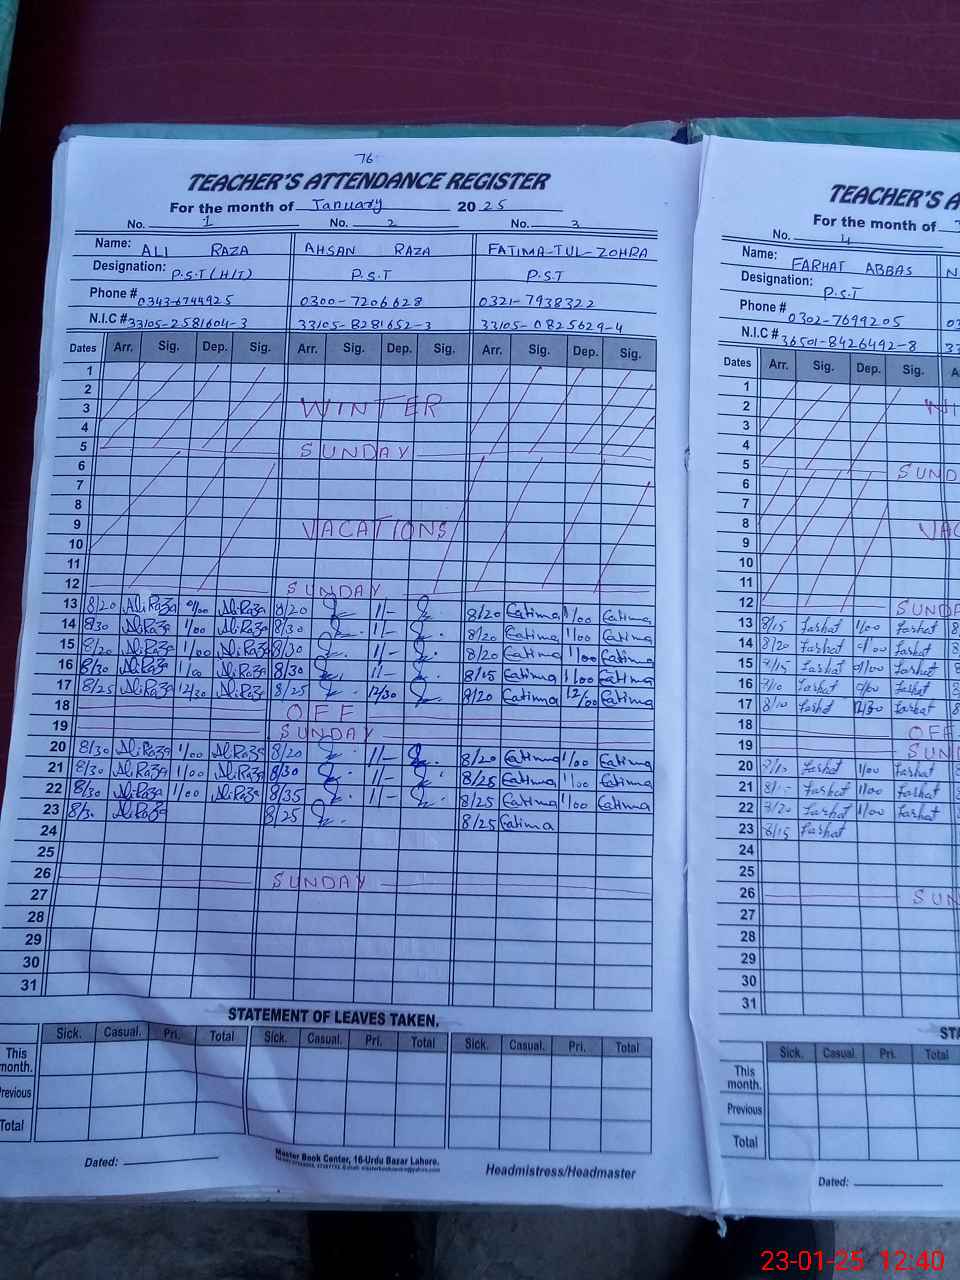 76
TEACHER'S ATTENDANCE REGISTER
For the month of January 2025
No. 1 No. 2 No. 3
Name: ALI RAZA AHSAN RAZA FATIMA-TUL-ZOHRA
Designation: P.S.T (H/T) P.S.T P.S.T
Phone # 0343-6744925 0300-7206628 0321-7938322
N.I.C # 33105-2581604-3 33105-8281652-3 33105-0825629-4
Dates Arr. Sig. Dep. Sig. Arr. Sig. Dep. Sig. Arr. Sig. Dep. Sig.
1
2
3 WINTER
4
5 SUNDAY
6
7
8
9 VACATIONS
10
11
12 SUNDAY
13 8/20 Ali Raza 1/00 Ali Raza 8/20 1/- 8/20 Fatima 1/00 Fatima
14 8/30 Ali Raza 1/00 Ali Raza 8/30 1/- 8/20 Fatima 1/00 Fatima
15 8/20 Ali Raza 1/00 Ali Raza 8/30 1/- 8/20 Fatima 1/00 Fatima
16 8/30 Ali Raza 1/00 Ali Raza 8/30 1/- 8/15 Fatima 1/00 Fatima
17 8/25 Ali Raza 12/30 Ali Raza 8/25 12/30 8/20 Fatima 12/00 Fatima
18 OFF
19 SUNDAY
20 8/30 Ali Raza 1/00 Ali Raza 8/20 1/- 8/20 Fatima 1/00 Fatima
21 8/30 Ali Raza 1/00 Ali Raza 8/30 1/- 8/25 Fatima 1/00 Fatima
22 8/30 Ali Raza 1/00 Ali Raza 8/35 1/- 8/25 Fatima 1/00 Fatima
23 8/30 Ali Raza 8/25 8/25 Fatima
24
25
26 SUNDAY
27
28
29
30
31
STATEMENT OF LEAVES TAKEN.
Sick. Casual. Pri. Total Sick. Casual. Pri. Total Sick. Casual. Pri. Total
This month.
Previous
Total
Dated:
Master Book Center, 16-Urdu Bazar Lahore.
Headmistress/Headmaster
TEACHER'S A
For the month of
No. 4
Name: FARHAT ABBAS N
Designation: P.S.T
Phone # 0302-7699205 03
N.I.C # 36501-8426492-8 33
Dates Arr. Sig. Dep. Sig. A
1
2 WI
3
4
5 SUND
6
7
8 VAC
9
10
11
12 SUND
13 8/15 Farhat 1/00 Farhat 8
14 8/20 Farhat 1/00 Farhat 8
15 Farhat Farhat
16 Farhat Farhat
17 8/10 Farhat 12/30 Farhat 8
18 OFF
19 SUN
20 Farhat 1/00 Farhat 8
21 Farhat 1/00 Farhat 8
22 Farhat 1/00 Farhat
23 8/15 Farhat
24
25
26 SUN
27
28
29
30
31
STA
Sick. Casual. Pri. Total
This month.
Previous
Total
Dated:
23-01-25 12:40